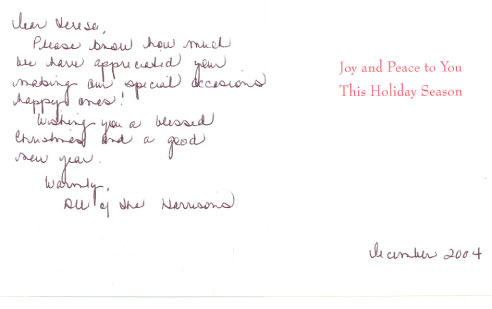 Dear Terese,
Please know how much
we have appreciated your
making our special occasions
happy ones!
Wishing you a blessed
Christmas and a good
new year.
Warmly,
All of the Harrisons
Joy and Peace to You
This Holiday Season
December 2004